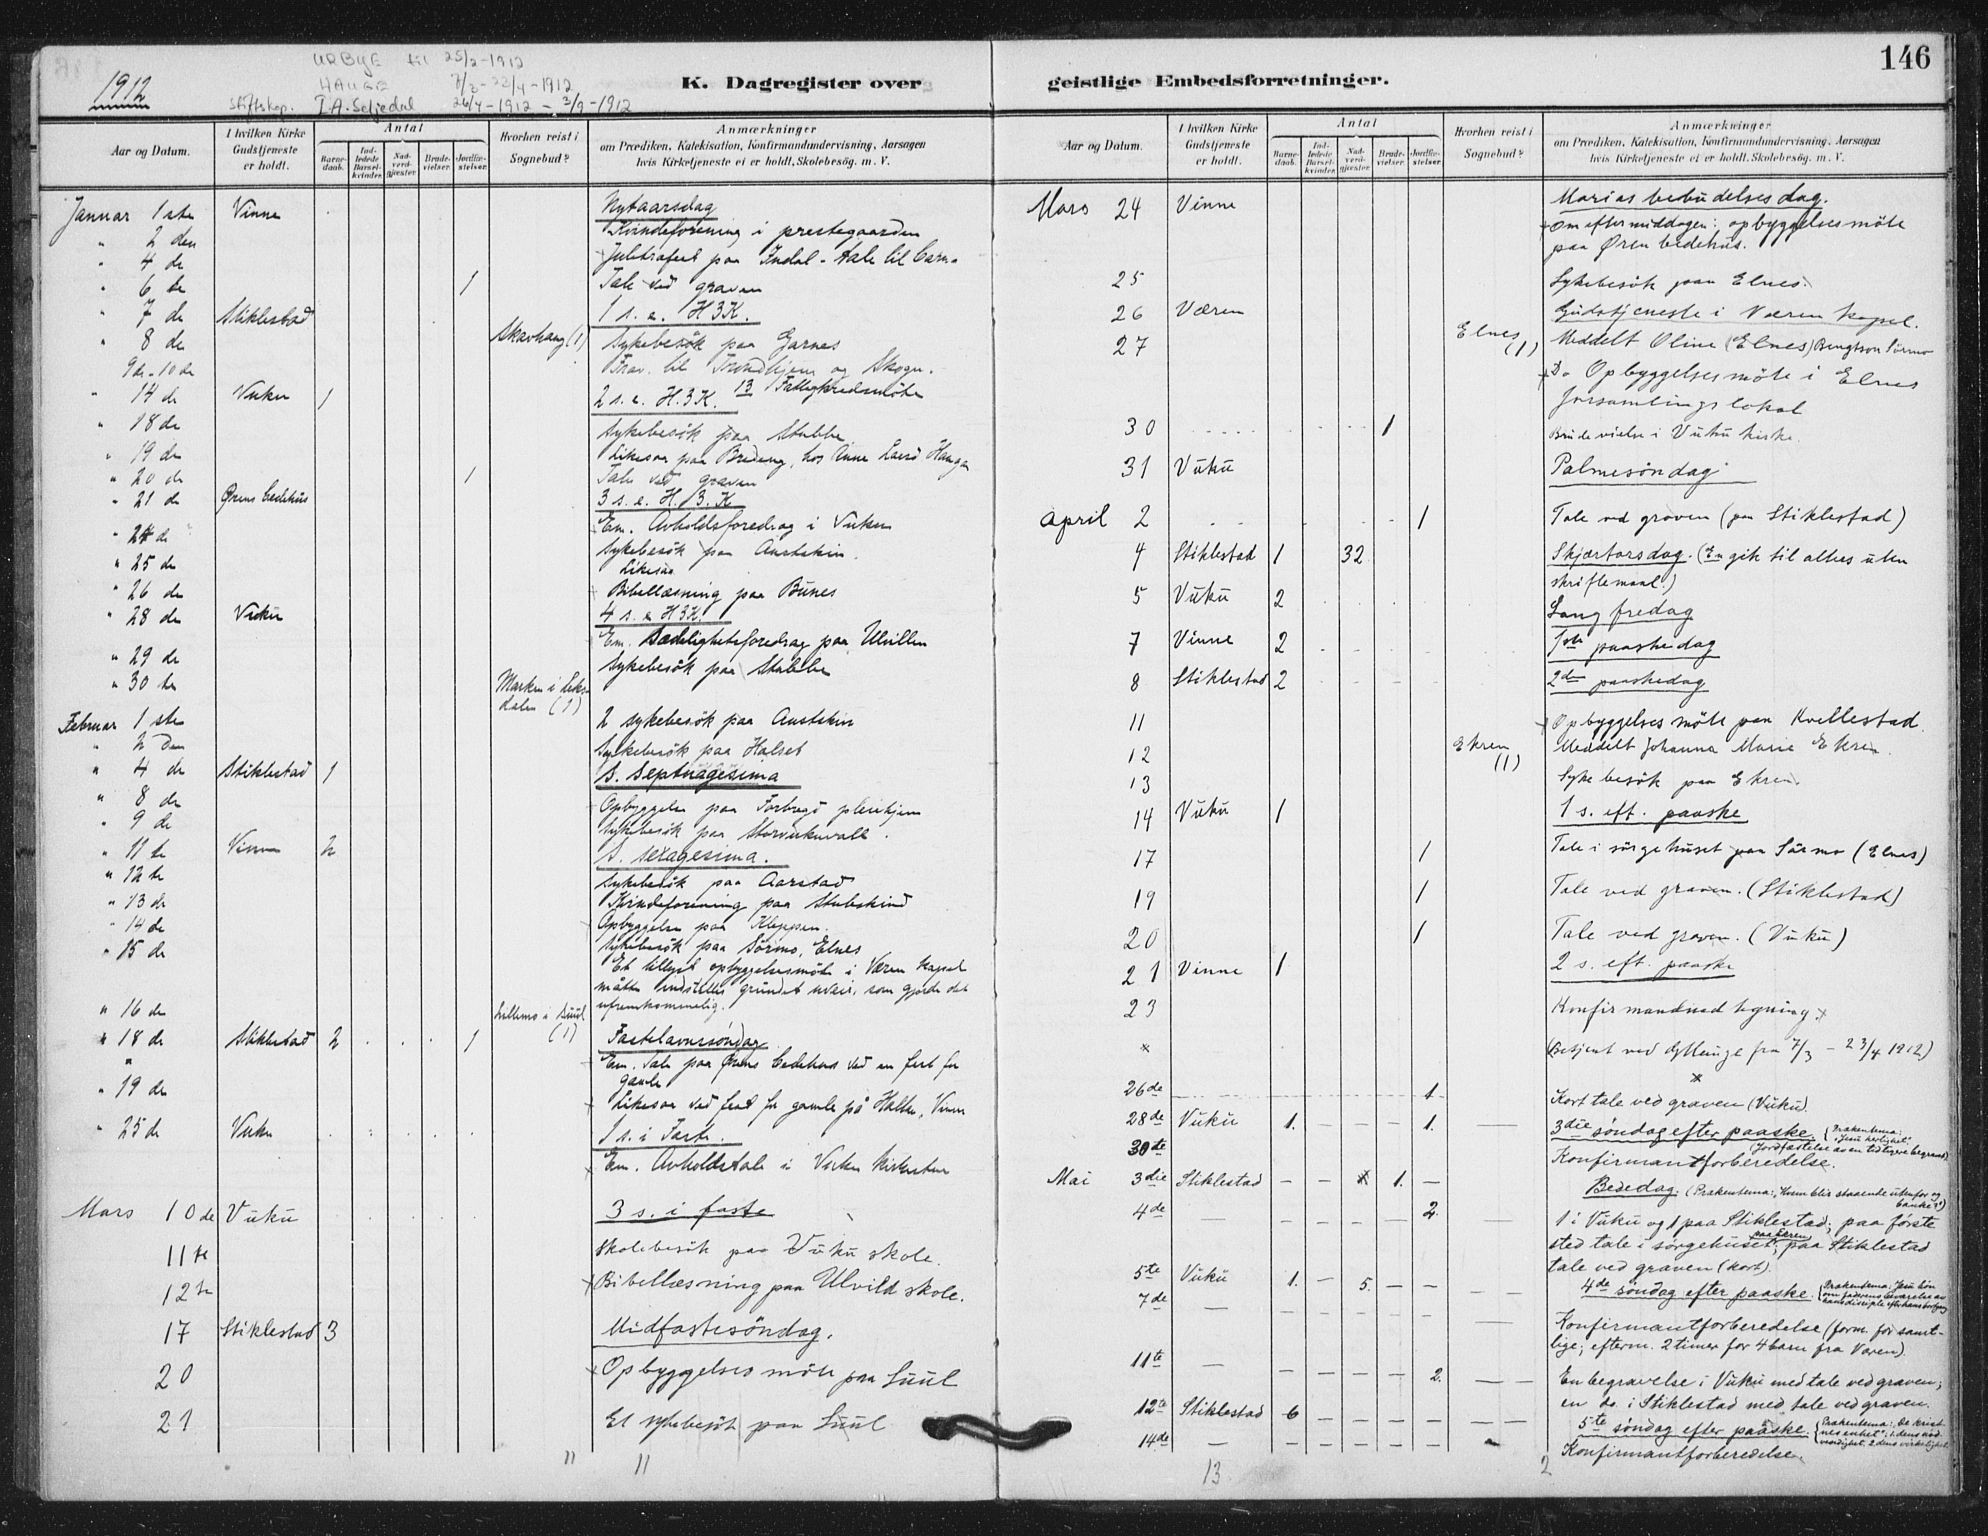 1912
URBYE til 25/2-1912
HAUGE 7/3-23/4-1912
Stiftskap. I.A. Seljedal 26/4-1912 - 3/9-1912
K. Dagregister over
Aar og Datum.
I hvilken Kirke Gudstjeneste er holdt.
Antal
Barnedaab.
Indledede Barselkvinder.
Nadverdgjæster.
Brudevielser.
Jordfæstelser.
Hvorhen reist i Sognebud?
Anmærkninger
om Prædiken, Katekisation, Konfirmandundervisning, Aarsagen
hvis Kirketjeneste ei er holdt, Skolebesög. m. V.
Januar 1ste Vinne Nytaarsdag
" 2den Kvindeforening i prestegaarden
" 4de Juletræfest paa Indal - tale til barn
" 6te 1 Tale ved graven
" 7de Stiklestad 1 s. e. H3K.
" 8de Skavhaug (1) Sykebesök paa Garnes
9de-10de Frav. til Trondhjem og Skogn.
" 14de Vuku 1 2 s. e. H.3K. 13 Fattigkredsmöte
" 18de Sykebesök paa Stubbe
" 19de Likesaa paa Bredeng, hos Anne Haugan
" 20de 1 Tale ved graven
" 21de Ørens bedehus 3 s. e. H. 3. K
Em. Avholdsforedrag i Vuku
" 24de Sykebesök paa Austskin.
" 25de Likesaa
" 26de Bibellæsning paa Bunes
" 28de Vuku 4 s. e H3K.
Em. Sædelighetsforedrag paa Ulvillen
" 29de Sykebesök paa Stubbe
" 30te Marken i Leksdalen (1)
Februar 1ste 2 sykebesök paa Austskin
" 2den Sykebesök paa Halset
" 4de Stiklestad 1 S. septuagesima
" 8de Opbyggelse paa Forbregd pleiehjem
" 9de Sykebesök paa Storvukuvald.
" 11te Vinne 2 S. sexagesima.
" 12te Sykebesök paa Aarstad
" 13de Kvindeforening paa Stubskind
" 14de Opbyggelse paa Kleppen.
" 15de Sykebesök paa Sörmo, Elnes
Et tillyst opbyggelsesmöte i Væren kapel
måtte indstilles grundet uveir, som gjorde det
ufremkommelig.
" 16de Suul (1)
" 18de Stiklestad 2 1 Fastelavnssöndag
" Em. Tale paa Ørens bedehus ved en fest for
gamle
" 19de Likesaa ved fest for gamle på Hallem, Vinne
" 25de Vuku 1 s. i Faste.
Em. Avholdstale i Vuku kirkestue
Mars 10de Vuku 3 s. i faste
11te Skolebesök paa Vuku skole.
12te Bibellæsning paa Ulvild skole.
17 Stiklestad 3 Midfastesöndag.
20 Opbyggelses möte paa Suul
21 Et sykebesök paa Suul
" 11
146
geistlige Embedsforretninger.
Aar og Datum.
I hvilken Kirke Gudstjeneste er holdt.
Antal
Barnedaab.
Indledede Barselkvinder.
Nadverdgjæster.
Brudevielser.
Jordfæstelser.
Hvorhen reist i Sognebud?
Anmærkninger
om Prædiken, Katekisation, Konfirmandundervisning, Aarsagen
hvis Kirketjeneste ei er holdt, Skolebesög. m. V.
Mars 24 Vinne Marias bebudelses dag.
Om eftermiddagen: opbyggelses möte
paa Ören bedehus.
25 Sykebesök paa Elnes.
26 Væren Gudstjeneste i Væren kapel.
27 Elnes (1) Meddelt Oline (Elnes) Bengtson Sörmo
Do Opbyggelsesmöte i Elnes
forsamlings lokal
30 1 Brudevielse i Vuku kirke.
31 Vuku Palmesöndag
April 2 1 Tale ved graven (paa Stiklestad)
4 Stiklestad 1 32 Skjærtorsdag. (En gik til alters uten
skriftemaal.)
5 Vuku 2 Langfredag
7 Vinne 2 1ste paaskedag
8 Stiklestad 2 2den paaskedag
11 Opbyggelses möte paa Kvellestad.
12 Ekren (1) Meddelt Johanna Marie Ekren.
13 Sykebesök paa Ekren.
14 Vuku 1 1 s. eft. paaske
17 1 Tale i sörgehuset paa Sörmo (Elnes)
19 1 Tale ved graven. (Stiklestad)
20 1 Tale ved graven. (Vuku)
21 Vinne 1 2 s. eft. paaske
23 Konfirmandundtegning.
(Betjent ved af Hauge fra 7/3 - 23/4 1912)
26de 1. Kort tale ved graven (Vuku).
28de Vuku 1. 1. 3die söndag efter paaske. {Prækentema: "Jesu herlighet."
(Jordfæstelse av en tidligere begravet)
30te Konfirmantforberedelse.
Mai 3die Stiklestad 1. Bededag. (Prækentema: "Han blir staaende utenfor og banke"!)
4de 2. 1 i Vuku og 1 paa Stiklestad; paa förste
sted tale i sörgehuset; paa Stiklestad
tale ved graven (kort).
5te Vuku 1. 5. 4de söndag efter paaske. {Prækentema: Jesu bön
om faderens bevarelse av
hans disciple efter hans bortgang
7de Konfirmantforberedelse (form. for samtlige;
efterm. 2 timer for 4 barn fra Væren).
11te 2. En begravelse i Vuku med tale ved graven;
en do. i Stiklestad med tale ved graven.
12te Stiklestad 6 5te söndag efter paaske. {Prækentema: De kristnes
enhet": 1. dens nödvendighet.
2. dens virkelighet.
14de Konfirmantforberedelse.
13 2